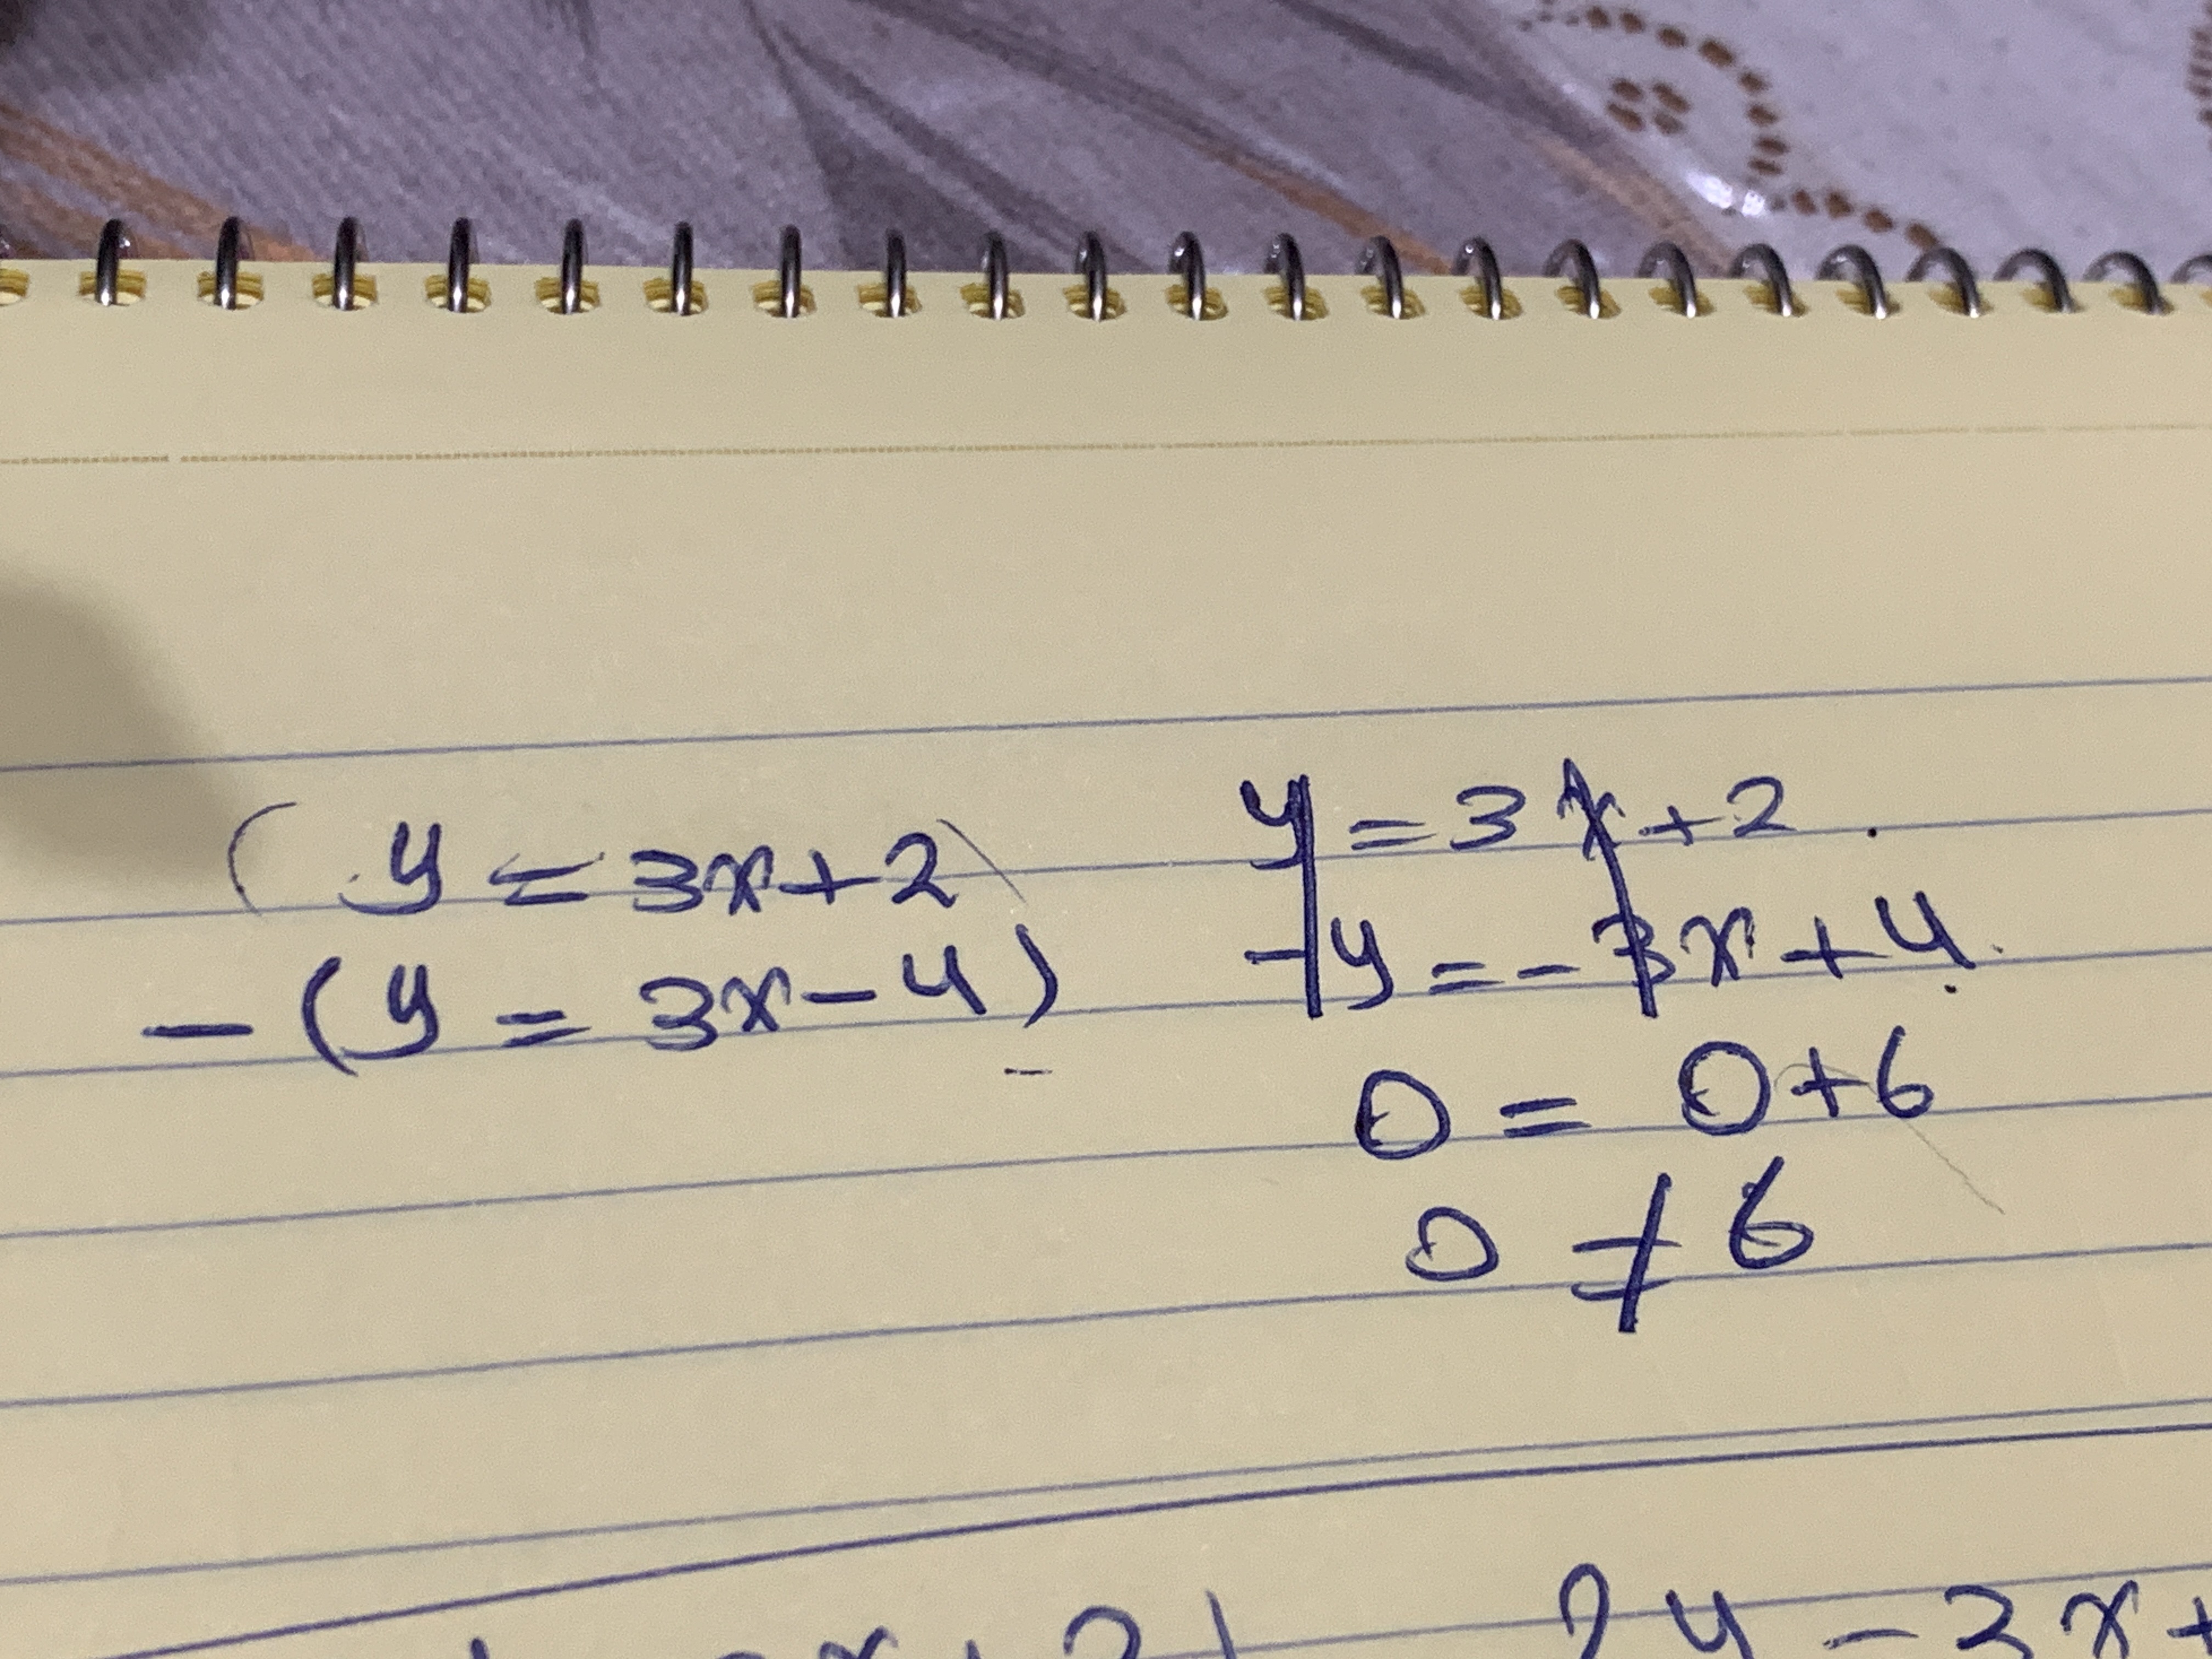 ( y = 3x+2 )
-( y = 3x-4 )
y = 3x+2
-y = -3x+4
0 = 0+6
0 ≠ 6
2y = 3x+